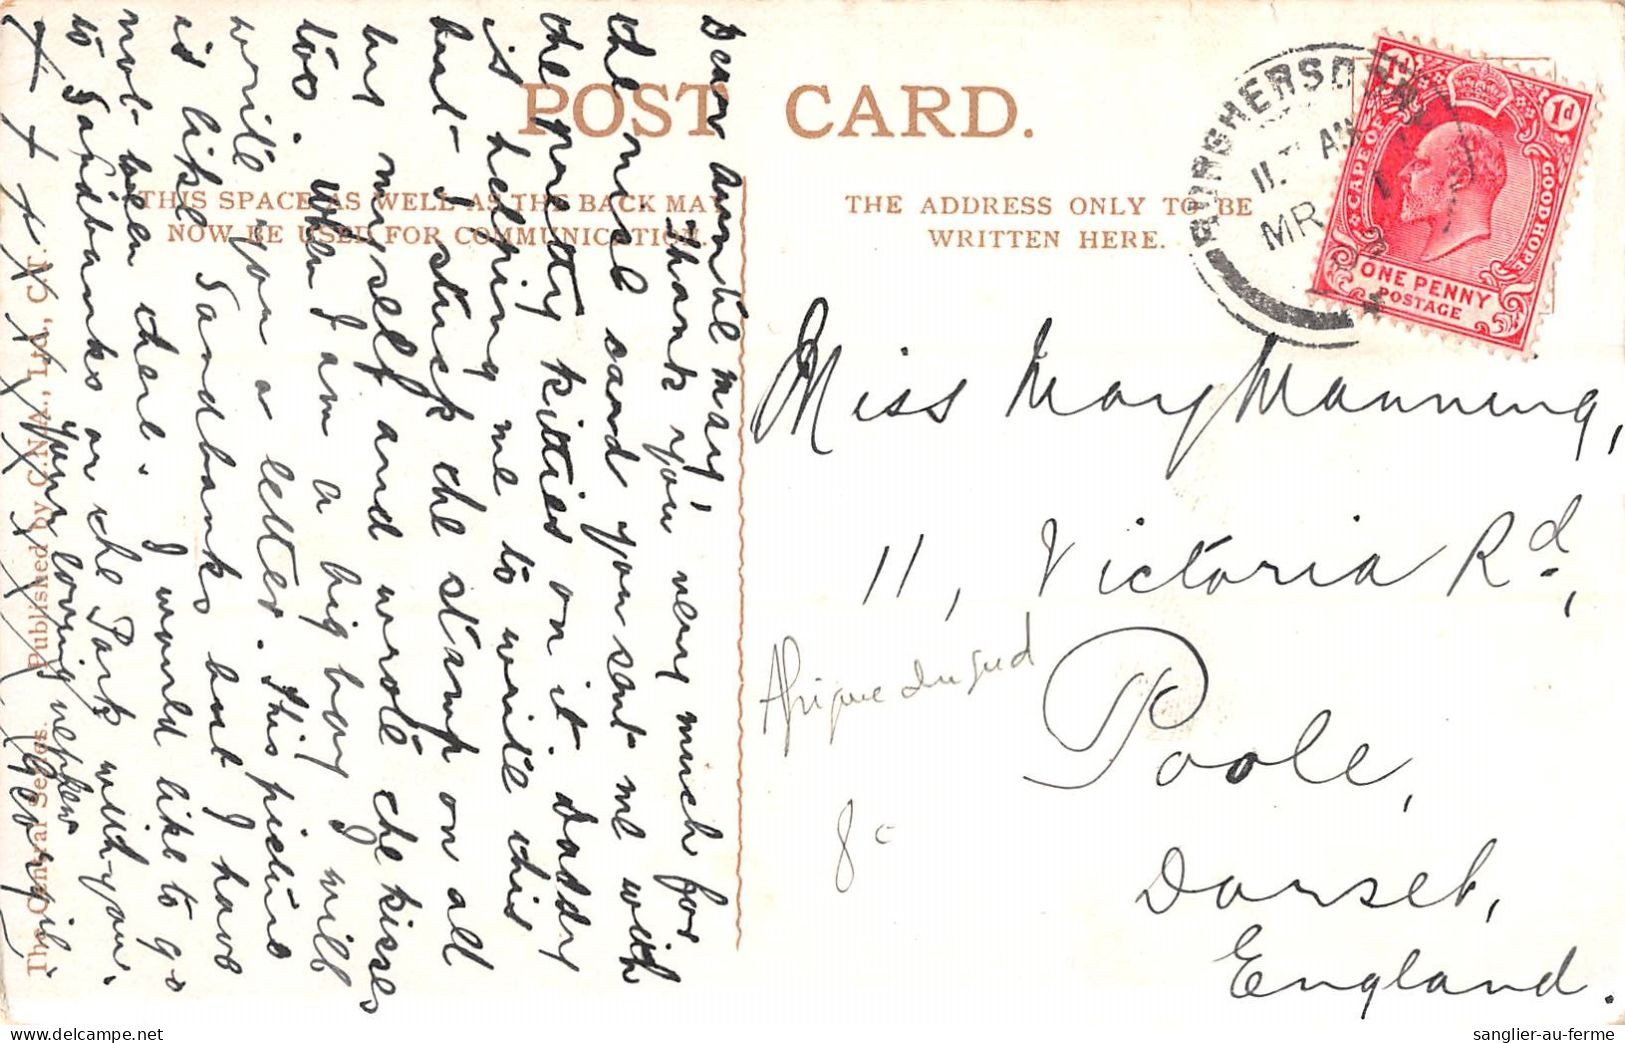 POST CARD.
THIS SPACE AS WELL AS THE BACK MAY
NOW BE USED FOR COMMUNICATION.
THE ADDRESS ONLY TO BE
WRITTEN HERE.
The Central Series. Published by C.N.A., Ltd., C.T.
Dear Auntie May
Thank you very much for
the nice card you sent me with
the pretty kitties on it. Daddy
is helping me to write this
but I stuck the stamp on all
by myself and wrote the kisses
too. When I am a big boy I will
write you a letter. This picture
is like Sandbanks but I have
not been there. I would like to go
to Sandbanks or the Park with you.
Your loving nephew
Georgie.
x x x x x x x x x x x
Miss May Manning,
11, Victoria Rd,
Poole,
Dorset,
England.
Afrique du Sud
8c
MR
1d 1d
CAPE OF GOOD HOPE
ONE PENNY
POSTAGE
sanglier-au-ferme